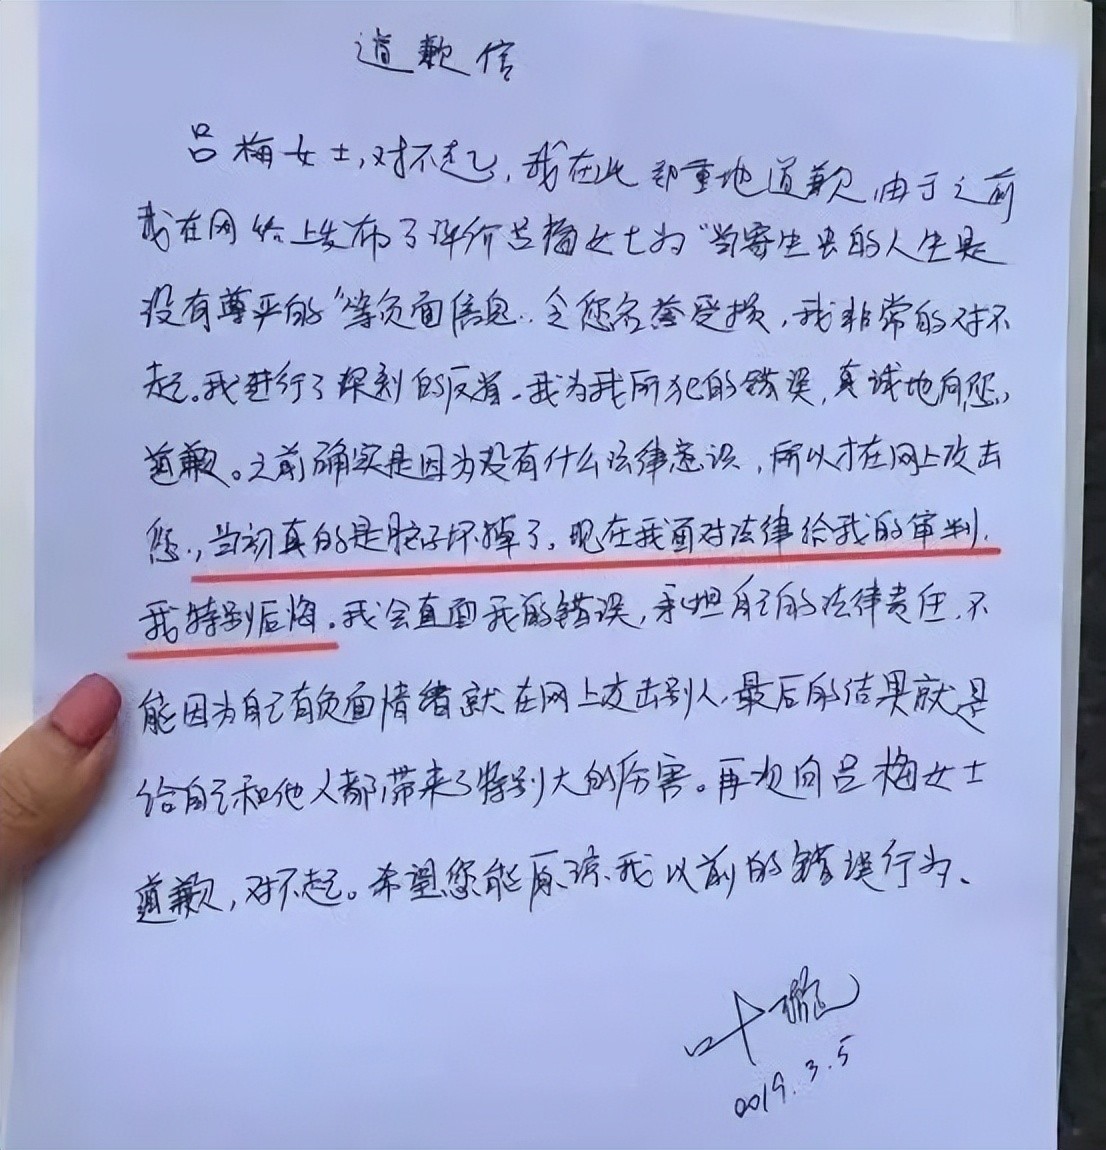 道歉信
吕梅女士，对不起，我在此郑重地道歉，由于之前
我在网络上发布了评价吕梅女士为“当寄生虫的人生是
没有尊严的”等负面信息，令您名誉受损，我非常的对不
起。我进行了深刻的反省。我为我所犯的错误，真诚地向您
道歉。之前确实是因为没有什么法律意识，所以才在网上攻击
您，当初真的是脑子坏掉了，现在我面对法律给我的审判，
我特别后悔。我会直面我的错误，承担自己的法律责任，不
能因为自己有负面情绪就在网上攻击别人，最后的结果就是
给自己和他人都带来了特别大的伤害。再次向吕梅女士
道歉，对不起。希望您能原谅我以前的错误行为、
叶璇
2019.3.5